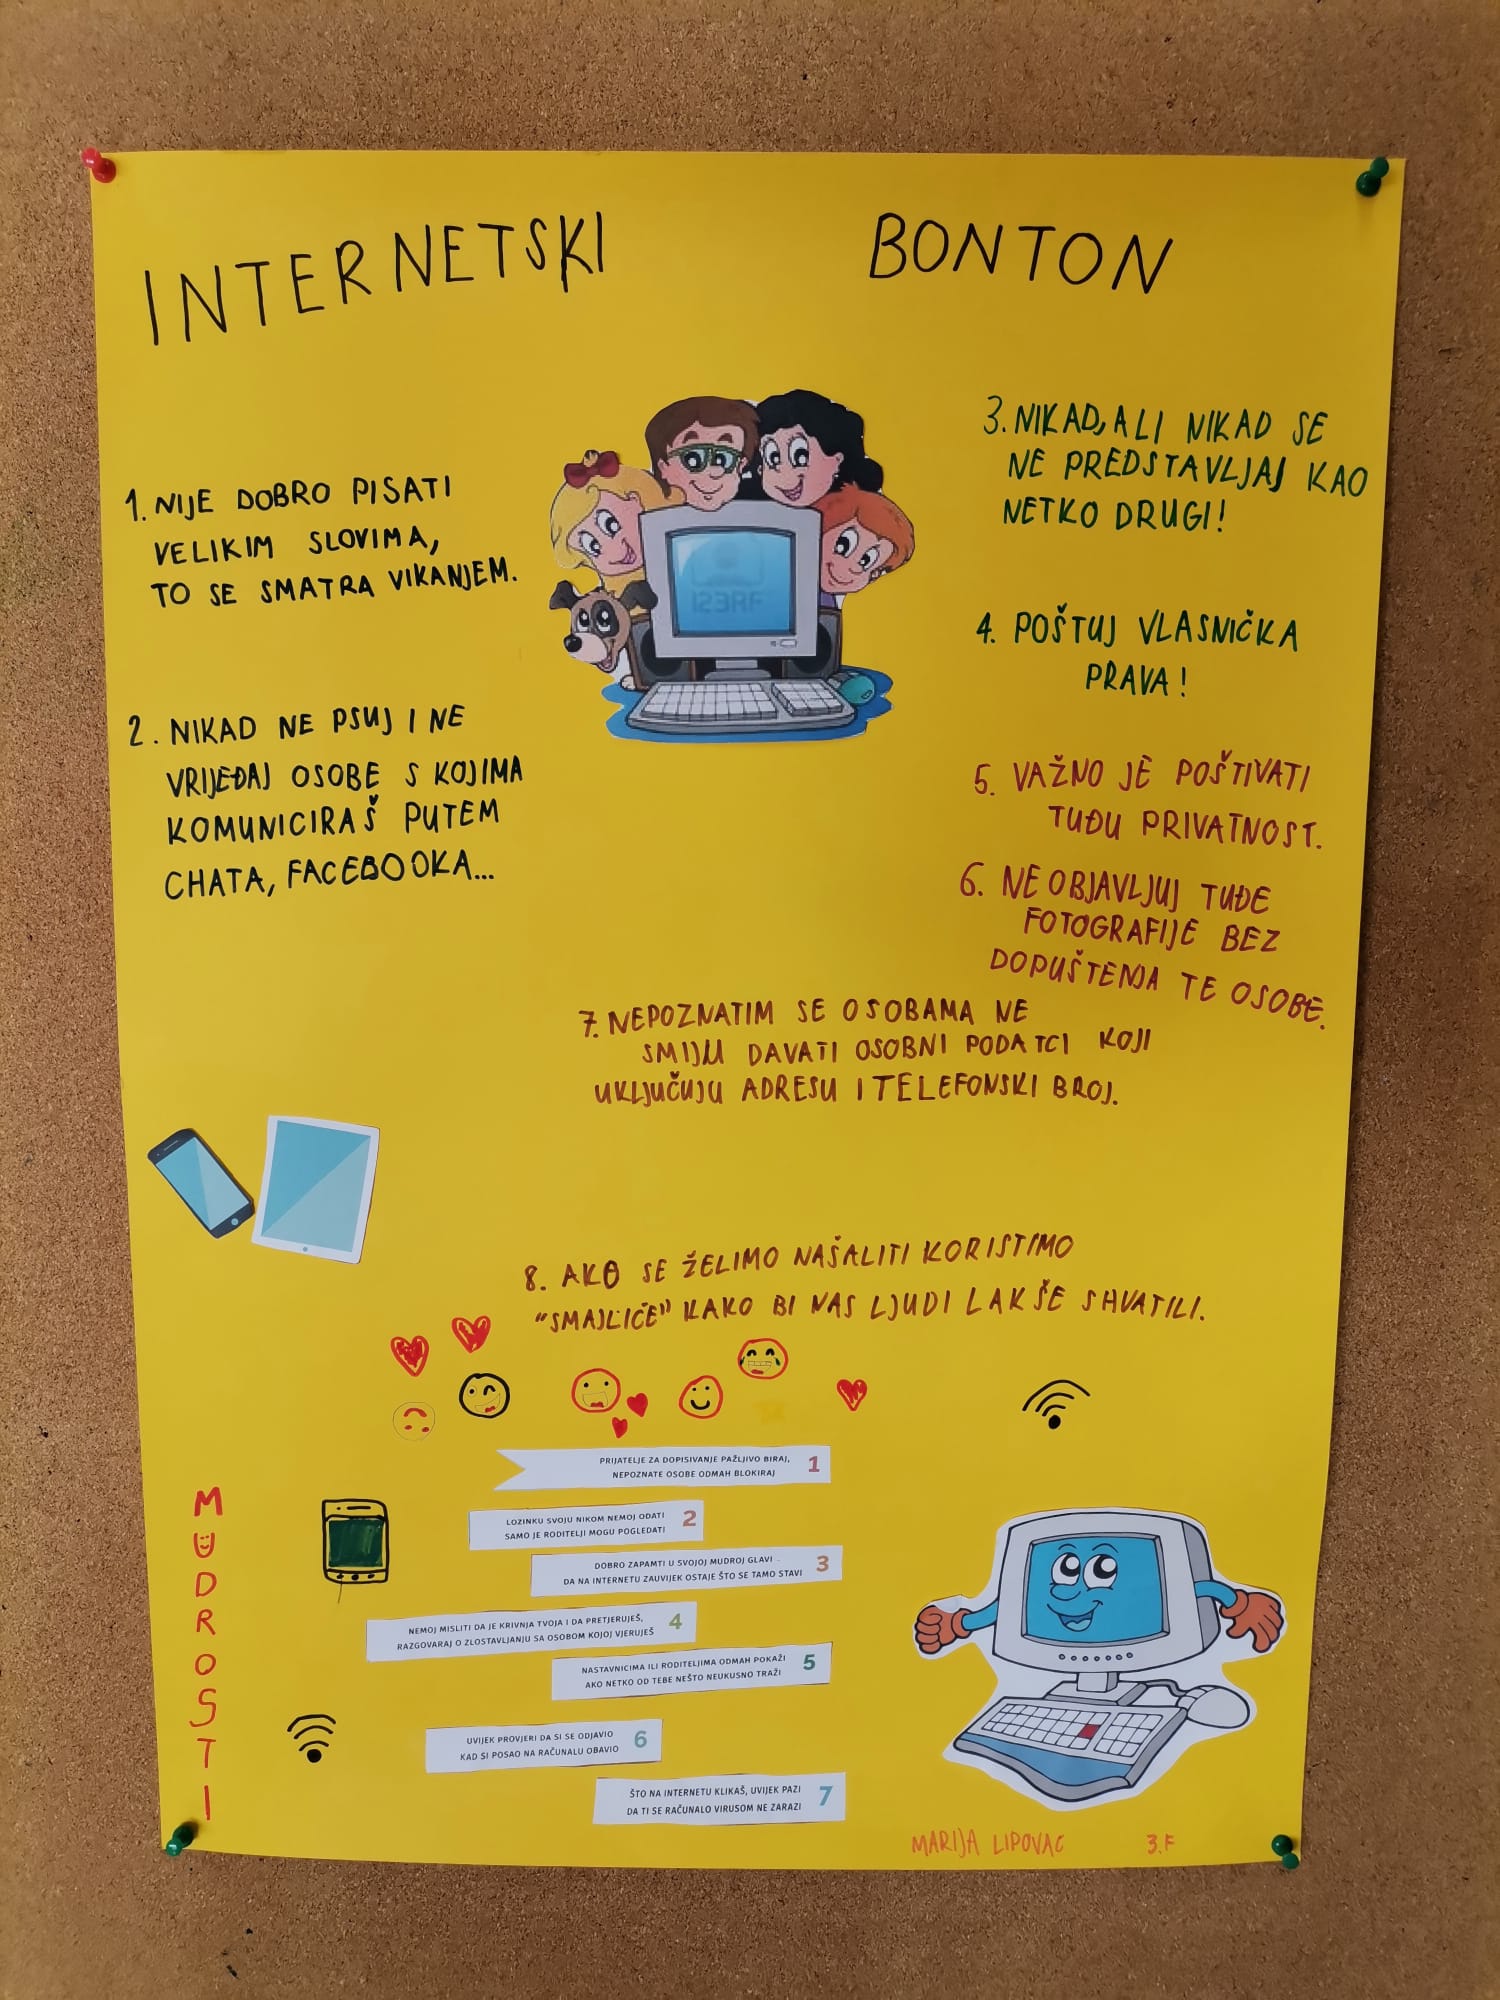 INTERNETSKI BONTON
1. NIJE DOBRO PISATI
VELIKIM SLOVIMA,
TO SE SMATRA VIKANJEM.
2. NIKAD NE PSUJ I NE
VRIJEĐAJ OSOBE S KOJIMA
KOMUNICIRAŠ PUTEM
CHATA, FACEBOOKA...
3. NIKAD, ALI NIKAD SE
NE PREDSTAVLJAJ KAO
NETKO DRUGI!
4. POŠTUJ VLASNIČKA
PRAVA!
5. VAŽNO JE POŠTIVATI
TUĐU PRIVATNOST.
6. NE OBJAVLJUJ TUĐE
FOTOGRAFIJE BEZ
DOPUŠTENJA TE OSOBE.
7. NEPOZNATIM SE OSOBAMA NE
SMIJU DAVATI OSOBNI PODATCI KOJI
UKLJUČUJU ADRESU I TELEFONSKI BROJ.
8. AKO SE ŽELIMO NAŠALITI KORISTIMO
"SMAJLIĆE" KAKO BI NAS LJUDI LAKŠE SHVATILI.
MUDROSTI
PRIJATELJE ZA DOPISIVANJE PAŽLJIVO BIRAJ, 1
NEPOZNATE OSOBE ODMAH BLOKIRAJ
LOZINKU SVOJU NIKOM NEMOJ ODATI 2
SAMO JE RODITELJI MOGU POGLEDATI
DOBRO ZAPAMTI U SVOJOJ MUDROJ GLAVI 3
DA NA INTERNETU ZAUVIJEK OSTAJE ŠTO SE TAMO STAVI
NEMOJ MISLITI DA JE KRIVNJA TVOJA I DA PRETJERUJEŠ, 4
RAZGOVARAJ O ZLOSTAVLJANJU SA OSOBOM KOJOJ VJERUJEŠ
NASTAVNICIMA ILI RODITELJIMA ODMAH POKAŽI 5
AKO NETKO OD TEBE NEŠTO NEUKUSNO TRAŽI
UVIJEK PROVJERI DA SI SE ODJAVIO 6
KAD SI POSAO NA RAČUNALU OBAVIO
ŠTO NA INTERNETU KLIKAŠ, UVIJEK PAZI 7
DA TI SE RAČUNALO VIRUSOM NE ZARAZI
MARIJA LIPOVAC 3.F